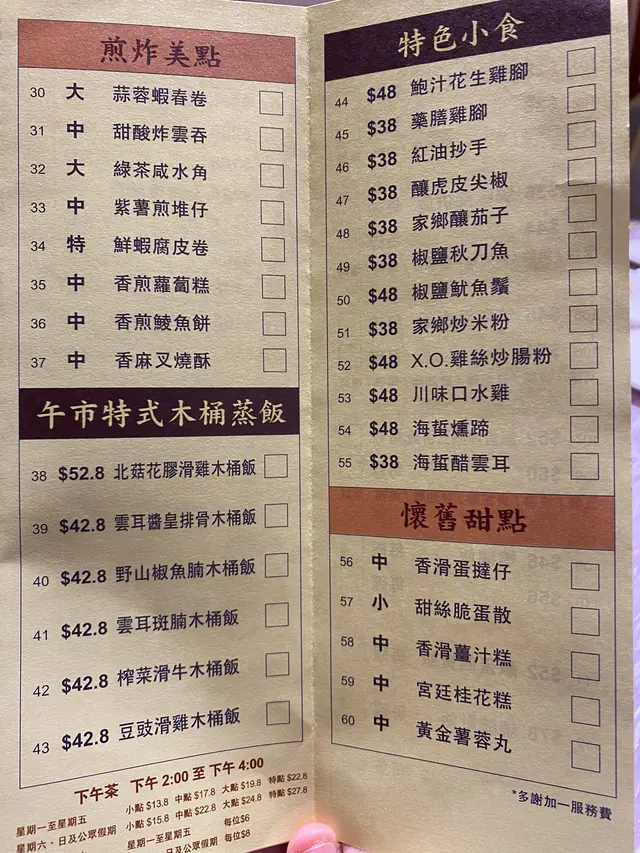 煎炸美點
30 大 蒜蓉蝦春卷
31 中 甜酸炸雲吞
32 大 綠茶咸水角
33 中 紫薯煎堆仔
34 特 鮮蝦腐皮卷
35 中 香煎蘿蔔糕
36 中 香煎鯪魚餅
37 中 香麻叉燒酥
午市特式木桶蒸飯
38 $52.8 北菇花膠滑雞木桶飯
39 $42.8 雲耳醬皇排骨木桶飯
40 $42.8 野山椒魚腩木桶飯
41 $42.8 雲耳斑腩木桶飯
42 $42.8 榨菜滑牛木桶飯
43 $42.8 豆豉滑雞木桶飯
下午茶 下午 2:00 至 下午 4:00
星期一至星期五 小點 $13.8 中點 $17.8 大點 $19.8 特點 $22.8
星期六、日及公眾假期 小點 $15.8 中點 $22.8 大點 $24.8 特點 $27.8
星期一至星期五 每位$6
日及公眾假期 每位$8
特色小食
44 $48 鮑汁花生雞腳
45 $38 藥膳雞腳
46 $38 紅油抄手
47 $38 釀虎皮尖椒
48 $38 家鄉釀茄子
49 $38 椒鹽秋刀魚
50 $48 椒鹽魷魚鬚
51 $38 家鄉炒米粉
52 $48 X.O.雞絲炒腸粉
53 $48 川味口水雞
54 $48 海蜇燻蹄
55 $38 海蜇醋雲耳
懷舊甜點
56 中 香滑蛋撻仔
57 小 甜絲脆蛋散
58 中 香滑薑汁糕
59 中 宮廷桂花糕
60 中 黃金薯蓉丸
*多謝加一服務費